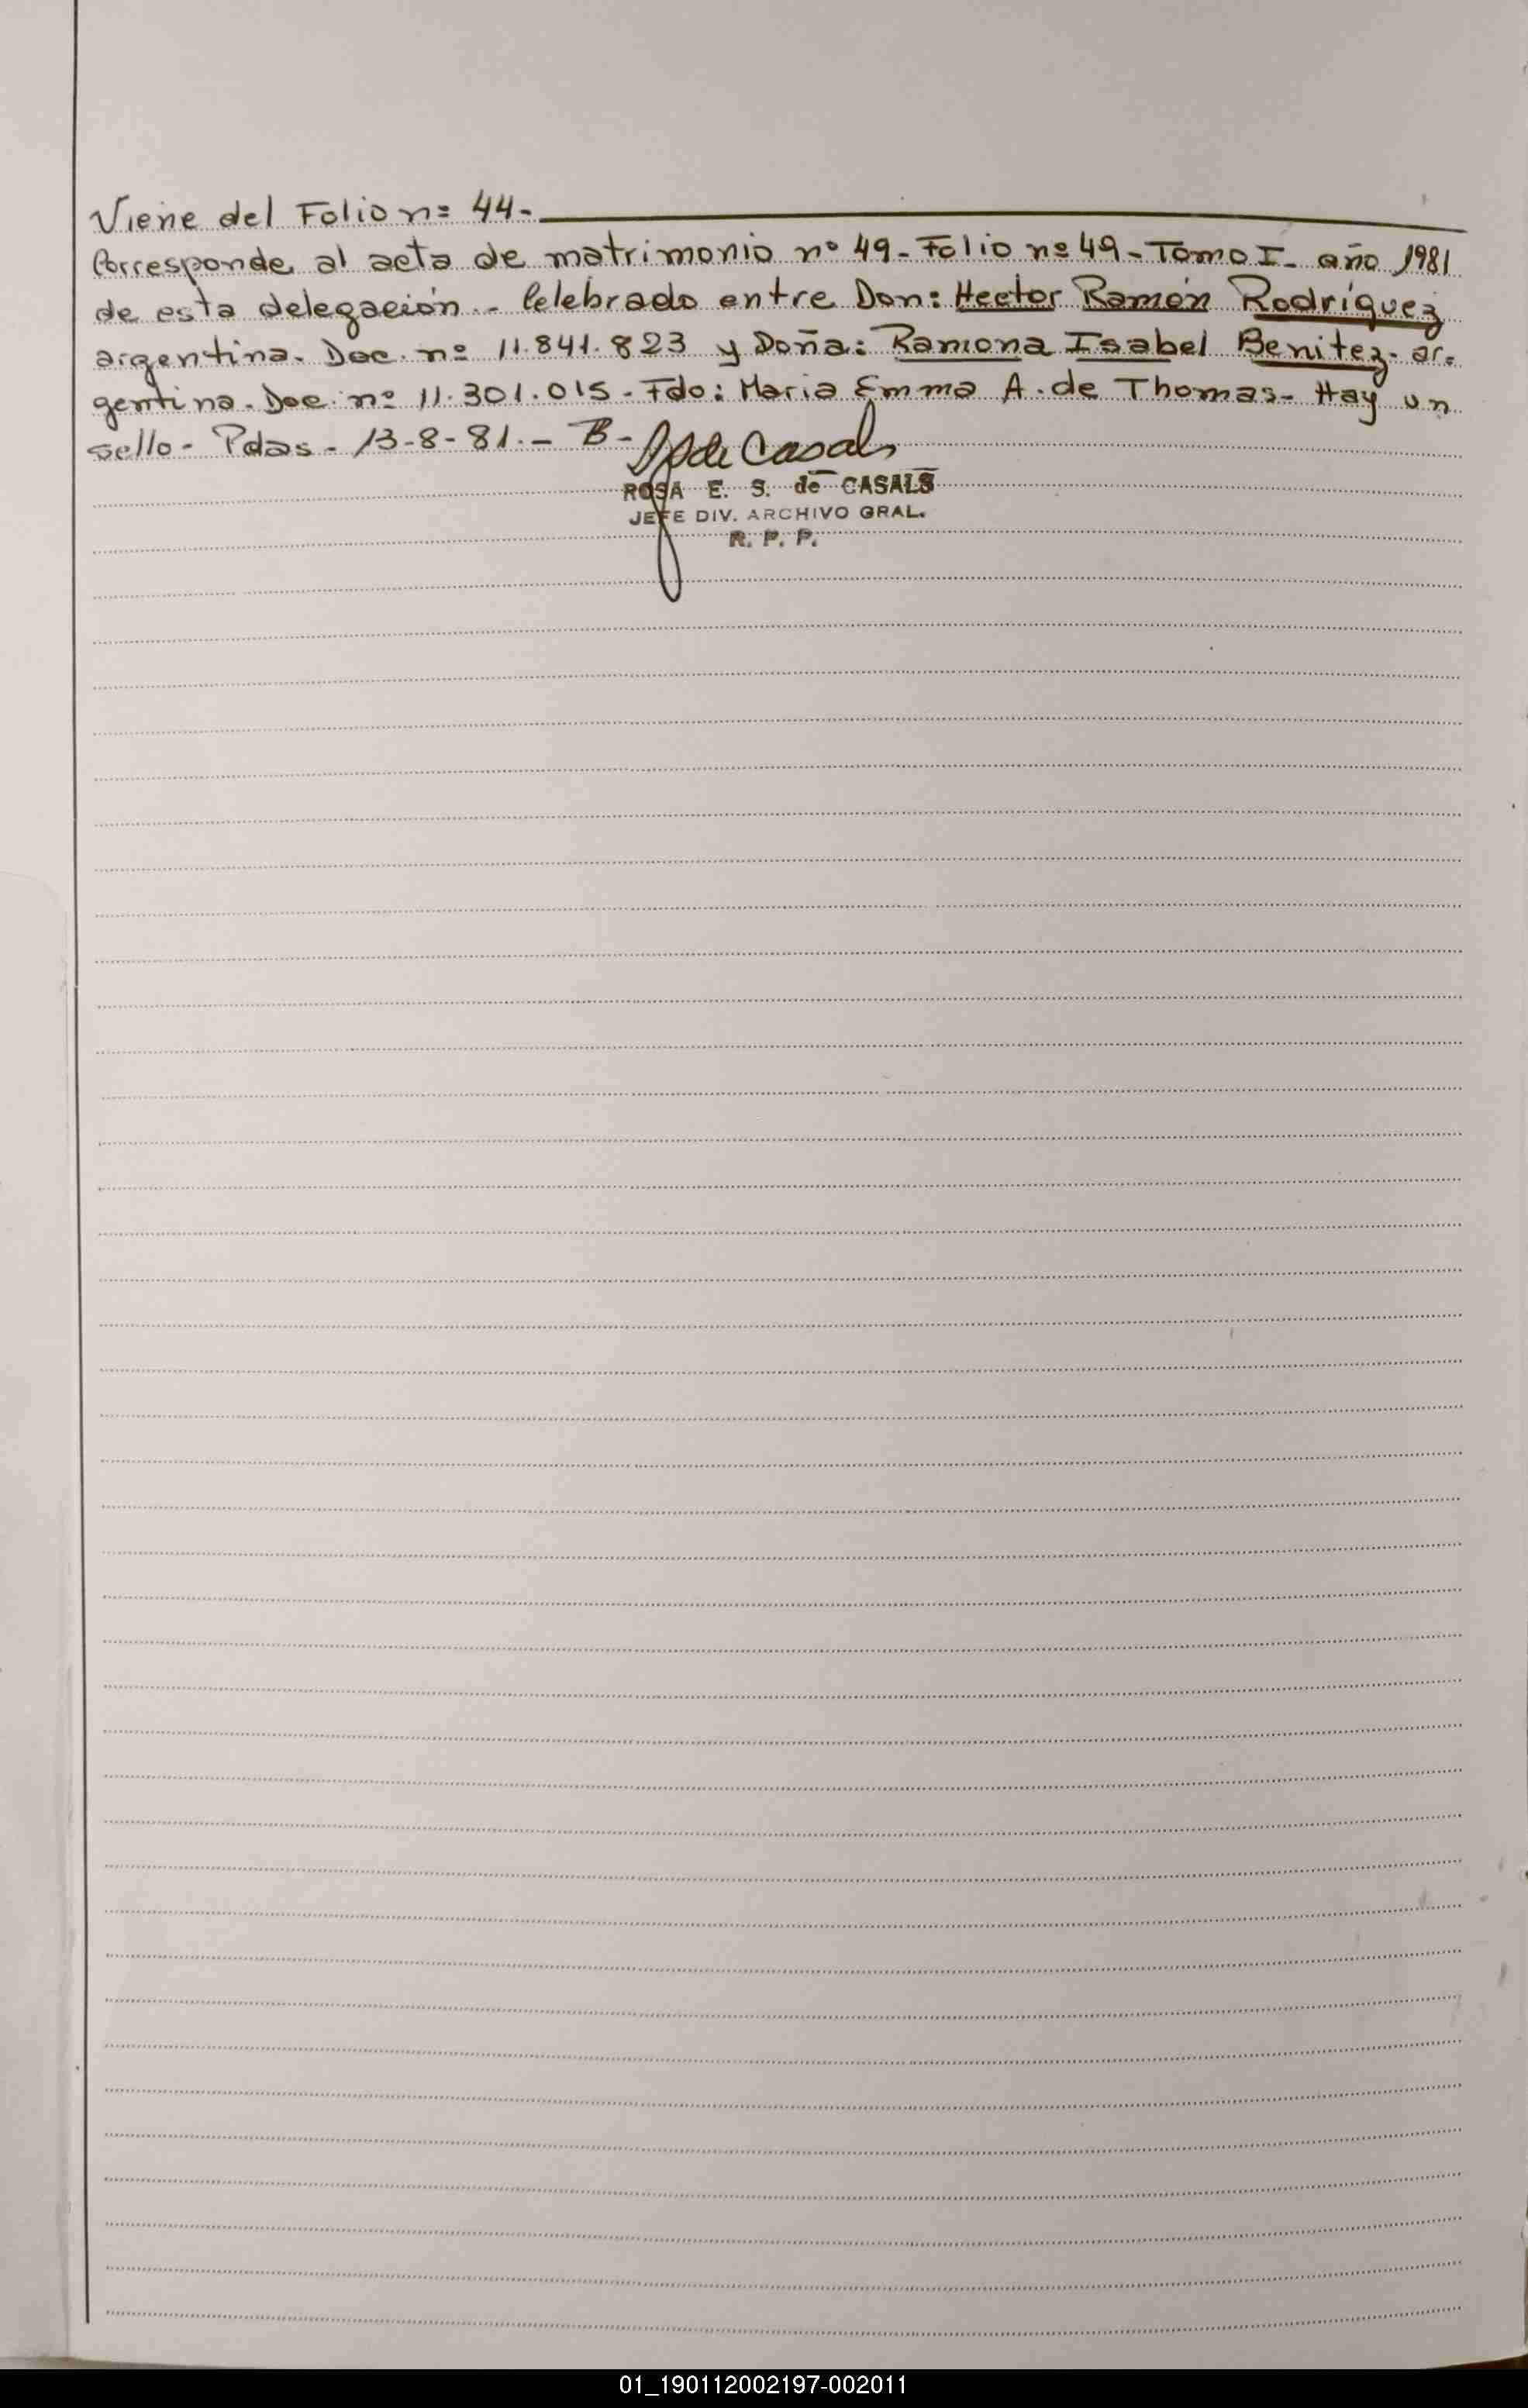 Viene del Folio nº 44-
Corresponde al acta de matrimonio nº 49- Folio nº 49- Tomo I- año 1981
de esta delegación.- Celebrado entre Don: Hector Ramón Rodríguez
argentina. Doc. nº 11.841.823 y Doña: Ramona Isabel Benitez- ar-
gentina. Doc. nº 11.301.015- Fdo: Maria Emma A. de Thomas- Hay un
sello- Pdas- 13-8-81.- B- de Casals
ROSA E. S. de CASALS
JEFE DIV. ARCHIVO GRAL.
R. P. P.
01_190112002197-002011